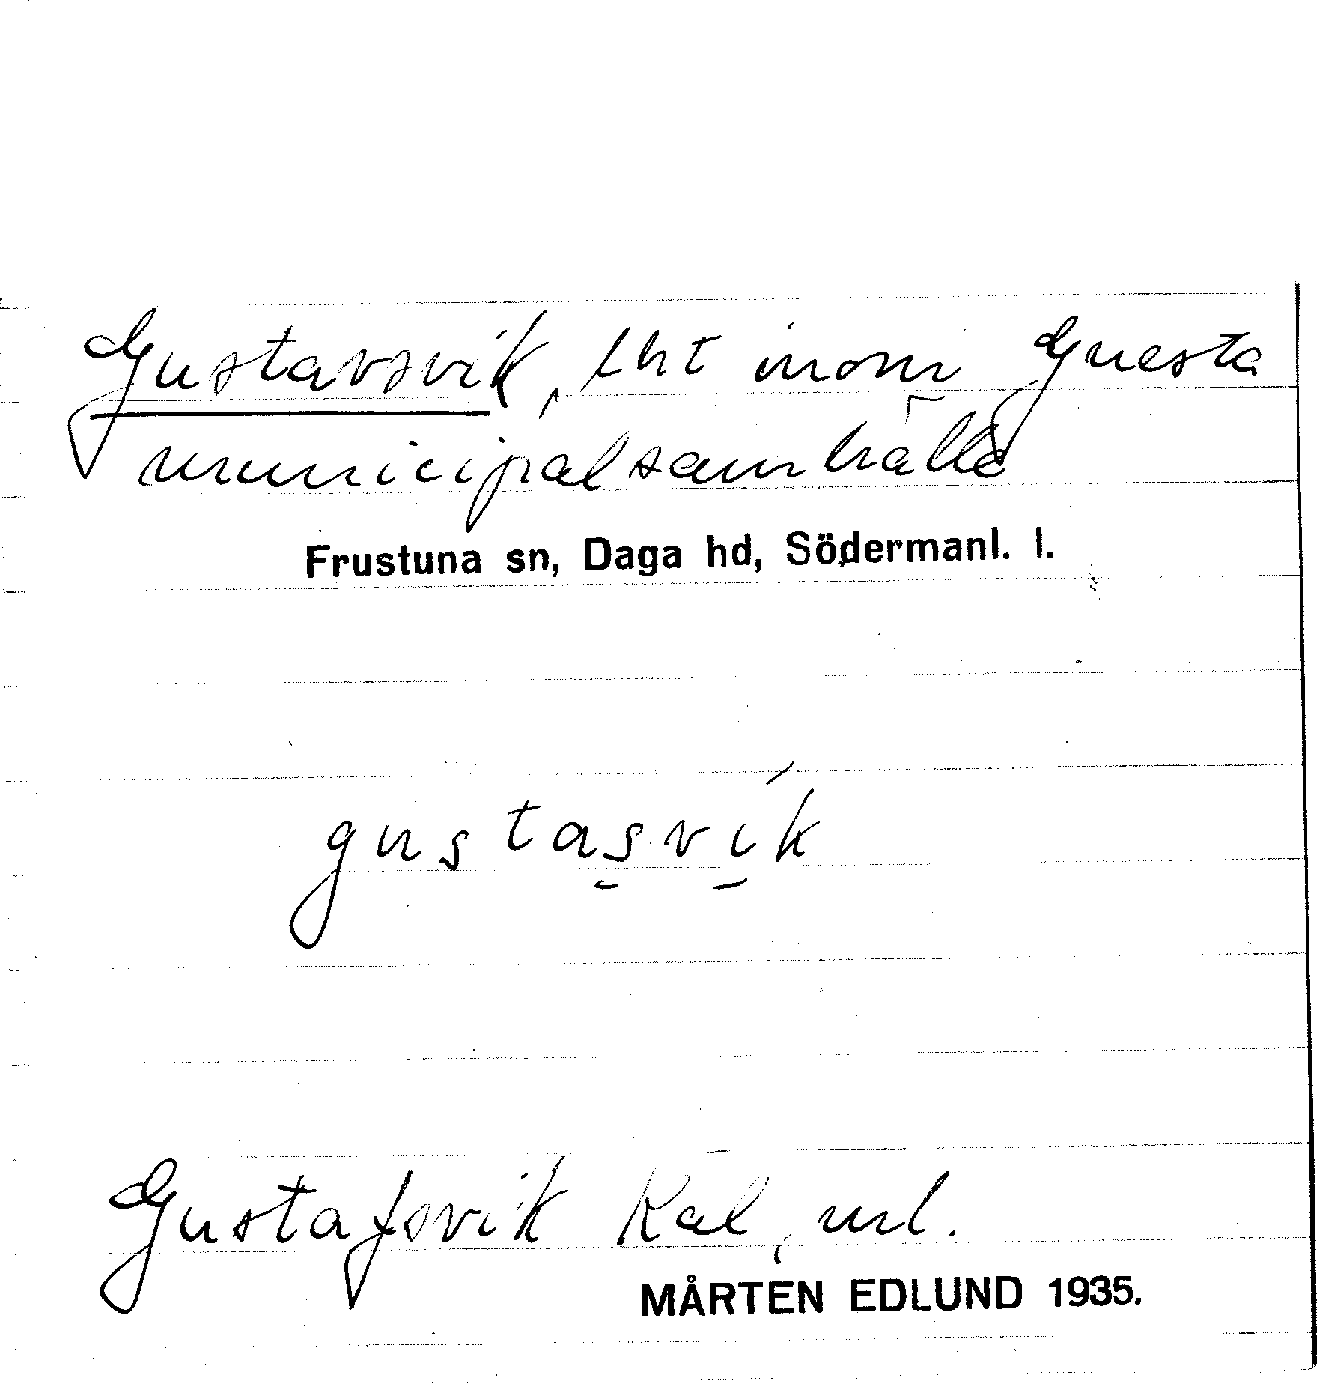 Gustavsvik, lht inom Gnesta
municipalsamhälle
Frustuna sn, Daga hd, Södermanl. l.
gustasvík
Gustafsvik Kal, url.
MÅRTEN EDLUND 1935.